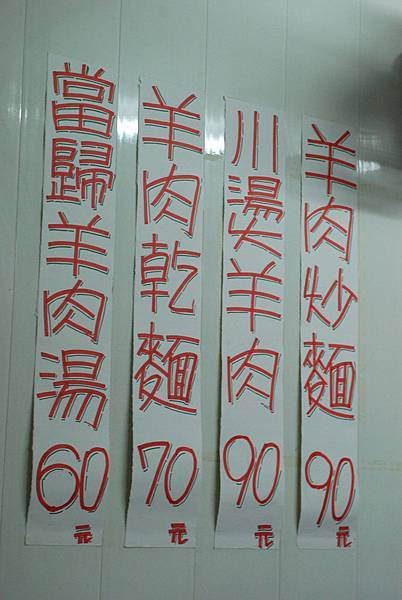 羊肉炒麵90元
川燙羊肉90元
羊肉乾麵70元
當歸羊肉湯60元